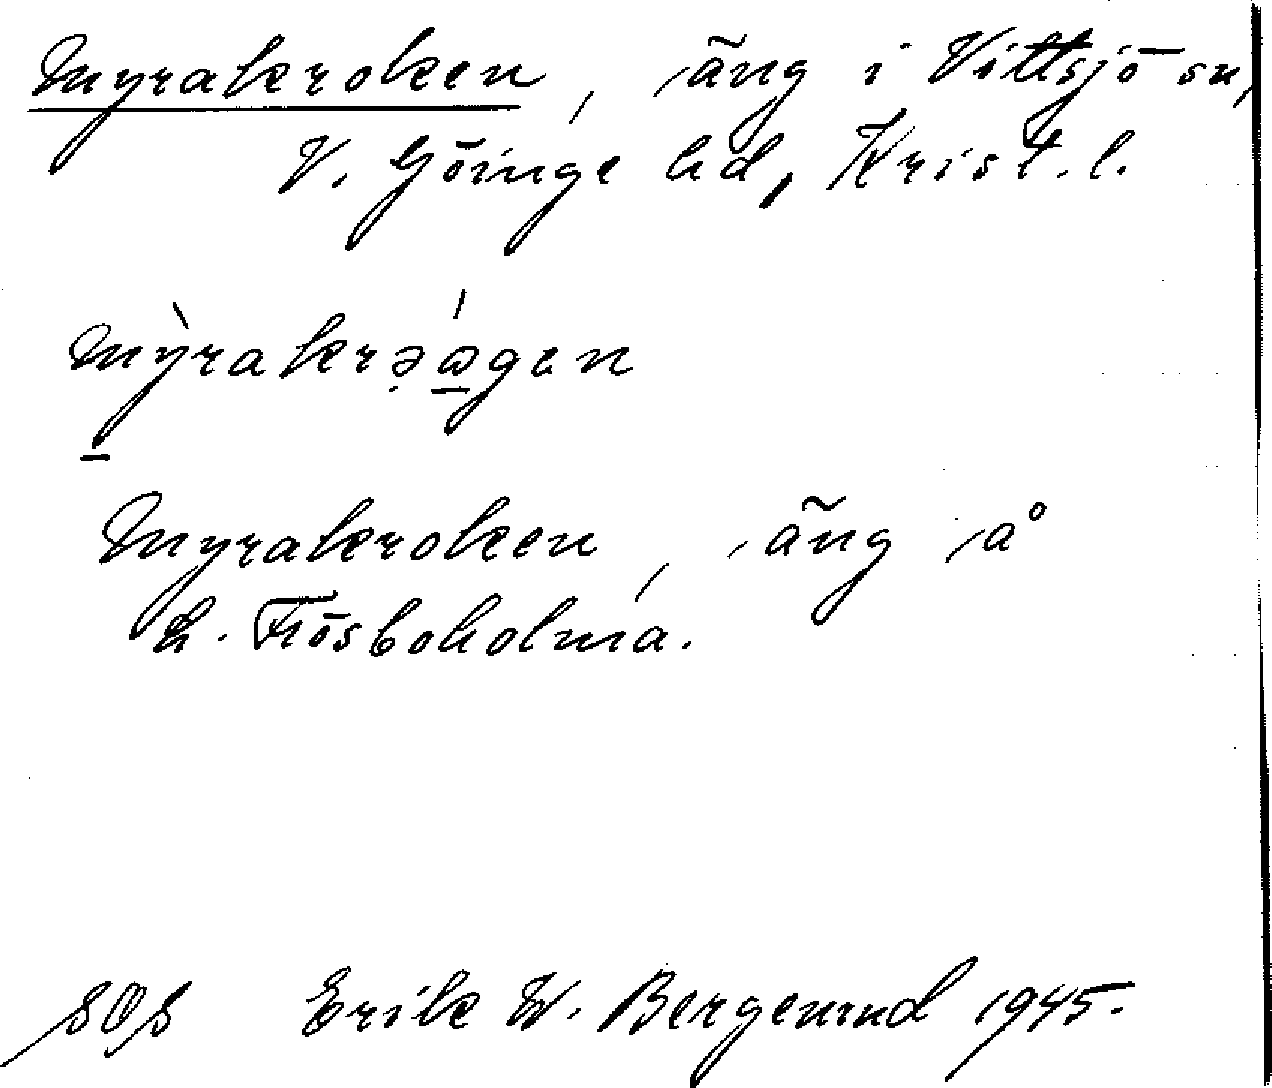 Myrakroken, äng i Vittsjö sn,
V. Göinge hd, Krist. l.
mỳrakrə̣ágen
Myrakroken, äng å
h. Flösboholma.
SOS Erik W. Bergenund 1945.